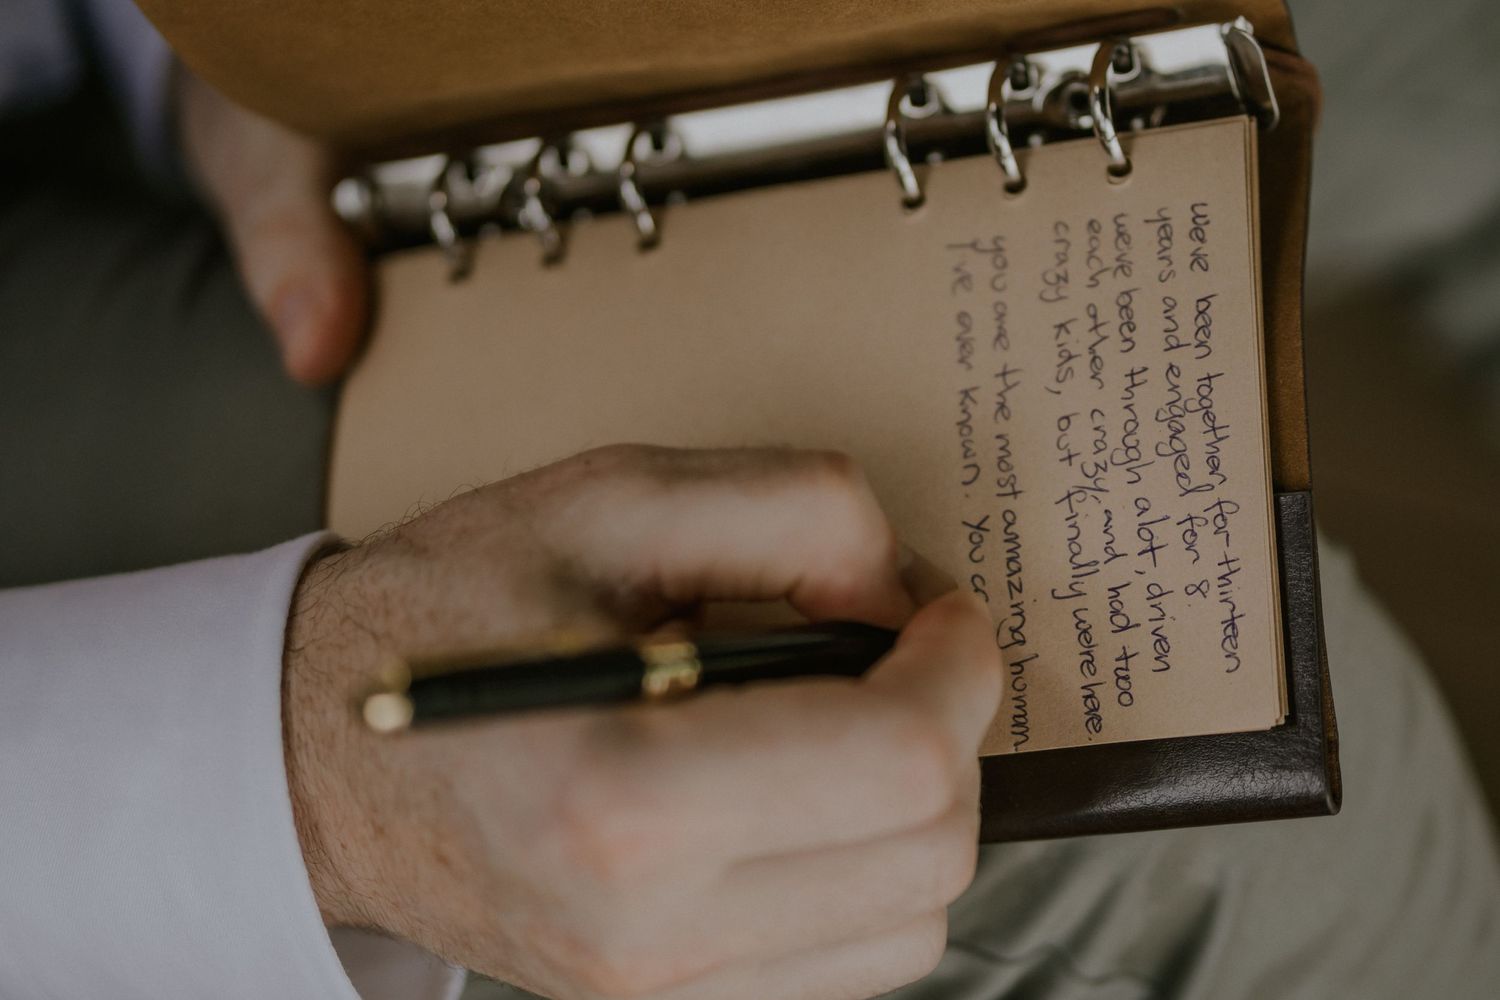 we've been together for thirteen
years and engaged for 8.
we've been through alot, driven
each other crazy, and had two
crazy kids, but finally we're here.
you are the most amazing human
I've ever known. You